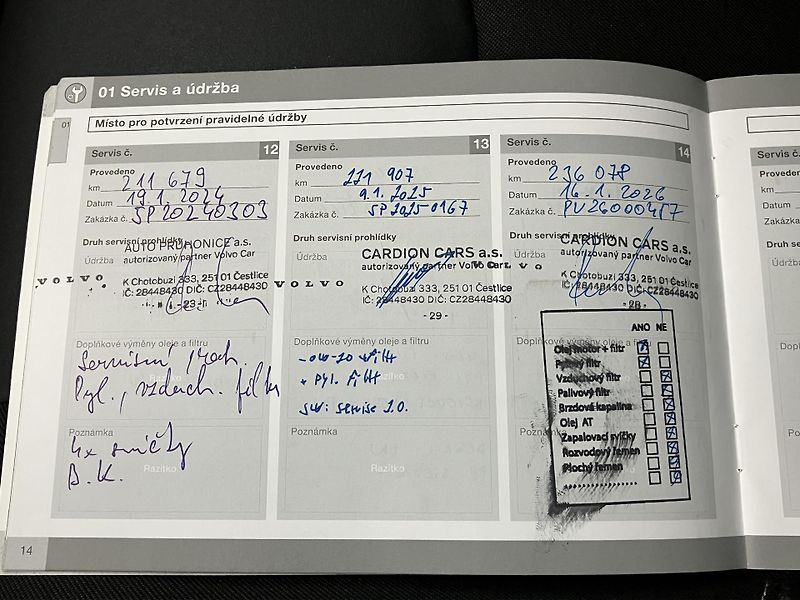 01 Servis a údržba
01
Místo pro potvrzení pravidelné údržby
Servis č. 12
Provedeno
km 211 679
Datum 19.1.2024
Zakázka č. SP20240303
Druh servisní prohlídky
AUTO PRŮHONICE a.s.
autorizovaný partner Volvo Car
Údržba
K Chotobuzi 333, 251 01 Čestlice
IČ: 28448430 DIČ: CZ28448430
VOLVO
- 23 -
Doplňkové výměny oleje a filtru
Servisní proh.
Pyl., vzduch. filtr
Poznámka
4x svíčky
B.K.
Razítko
Servis č. 13
Provedeno
km 221 907
Datum 9.1.2025
Zakázka č. SP2025 0167
Druh servisní prohlídky
CARDION CARS a.s.
autorizovaný partner Volvo Car
Údržba
K Chotobuzi 333, 251 01 Čestlice
IČ: 28448430 DIČ: CZ28448430
VOLVO
- 29 -
Doplňkové výměny oleje a filtru
- 0W-20 + filtr
+ pyl. filtr
Razítko
sw: servise 2.0.
Poznámka
Razítko
Servis č. 14
Provedeno
km 236 078
Datum 16.1.2026
Zakázka č. PV26000457
Druh servisní prohlídky
CARDION CARS a.s.
autorizovaný partner Volvo Car
Údržba
VOLVO
K Chotobuzi 333, 251 01 Čestlice
IČ: 28448430 DIČ: CZ28448430
- 28 -
ANO NE
Olej motor + filtr
Pylový filtr
Vzduchový filtr
Palivový filtr
Brzdová kapalina
Olej AT
Zapalovací svíčky
Rozvodový řemen
Plochý řemen
Poznámka
14
Servis č.
Provedeno
km
Datum
Zakázka č.
Druh servisní
Údržba
Doplňkové
Poznámka